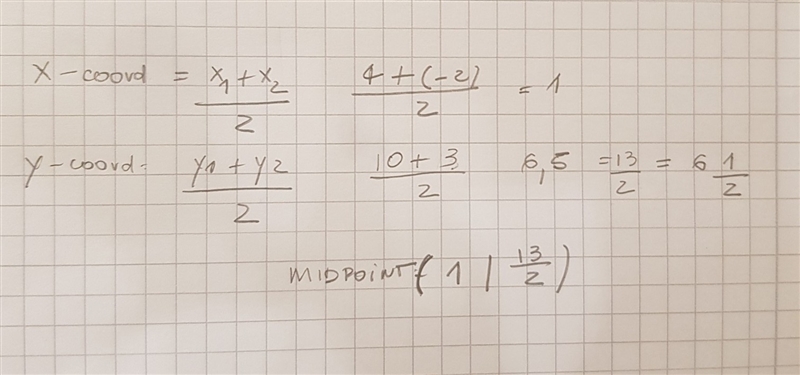 X-coord = (x₁+x₂)/2 (4+(-2))/2 = 1
Y-coord= (y1+y2)/2 (10+3)/2 6,5 = 13/2 = 6 1/2
MIDPOINT (1 | 13/2)